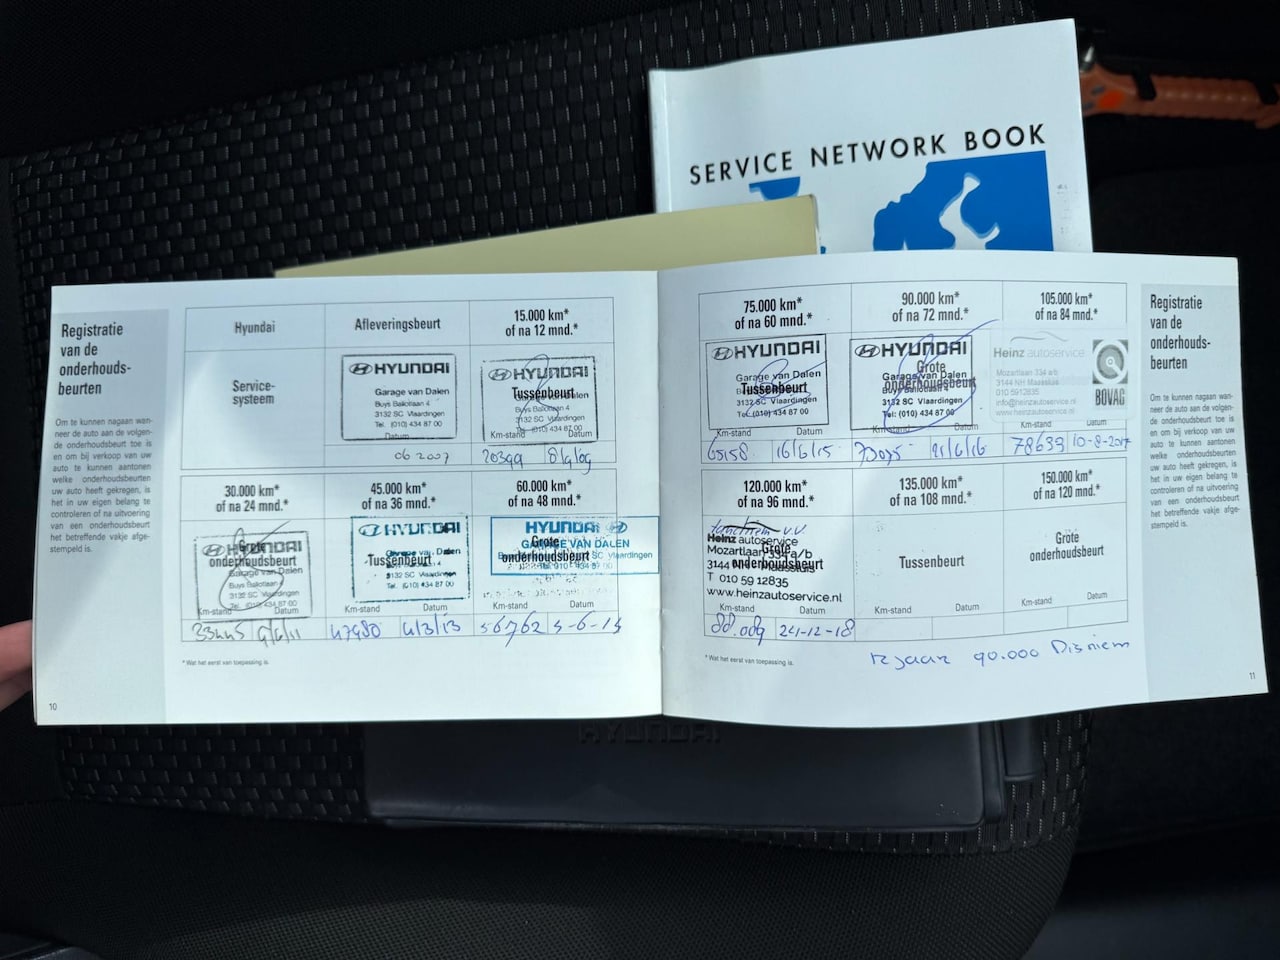 SERVICE NETWORK BOOK
Registratie
van de
onderhouds-
beurten
Om te kunnen nagaan wan-
neer de auto aan de volgen-
de onderhoudsbeurt toe is
en om bij verkoop van uw
auto te kunnen aantonen
welke onderhoudsbeurten
uw auto heeft gekregen, is
het in uw eigen belang te
controleren of na uitvoering
van een onderhoudsbeurt
het betreffende vakje afge-
stempeld is.
10
Hyundai
Service-
systeem
Afleveringsbeurt
HYUNDAI
Garage van Dalen
Buys Ballotlaan 4
3132 SC Vlaardingen
Tel. (010) 434 87 00
Datum
06 2007
15.000 km*
of na 12 mnd.*
HYUNDAI
Tussenbeurt
Buys Ballotlaan 4
3132 SC Vlaardingen
Tel. (010) 434 87 00
Km-stand Datum
20399 8/4/09
30.000 km*
of na 24 mnd.*
HYUNDAI
Grote
onderhoudsbeurt
Garage van Dalen
Buys Ballotlaan 4
3132 SC Vlaardingen
Tel. (010) 434 87 00
Km-stand Datum
33445
45.000 km*
of na 36 mnd.*
HYUNDAI
Garage van Dalen
Tussenbeurt
3132 SC Vlaardingen
Tel. (010) 434 87 00
Km-stand Datum
47980 4/3/13
60.000 km*
of na 48 mnd.*
HYUNDAI
GARAGE VAN DALEN
Grote
onderhoudsbeurt
SC Vlaardingen
434 87 00
Km-stand Datum
56762
* Wat het eerst van toepassing is.
75.000 km*
of na 60 mnd.*
HYUNDAI
Garage van Dalen
Tussenbeurt
Buys Ballotlaan 4
3132 SC Vlaardingen
Tel. (010) 434 87 00
Km-stand Datum
65158 16/6/15
90.000 km*
of na 72 mnd.*
HYUNDAI
Grote
onderhoudsbeurt
Garage van Dalen
Buys Ballotlaan 4
3132 SC Vlaardingen
Tel: (010) 434 87 00
Km-stand Datum
105.000 km*
of na 84 mnd.*
Heinz autoservice
Mozartlaan 334 a/b
3144 NH Maassluis
010 5912835
info@heinzautoservice.nl
www.heinzautoservice.nl
BOVAG
Km-stand Datum
78639 10-8-2017
120.000 km*
of na 96 mnd.*
Heinz autoservice
Mozartlaan 334 a/b
Grote
onderhoudsbeurt
3144 NH Maassluis
T 010 59 12835
www.heinzautoservice.nl
Km-stand Datum
88.009 24-12-18
135.000 km*
of na 108 mnd.*
Tussenbeurt
Km-stand Datum
150.000 km*
of na 120 mnd.*
Grote
onderhoudsbeurt
Km-stand Datum
* Wat het eerst van toepassing is.
90.000
Registratie
van de
onderhouds-
beurten
Om te kunnen nagaan wan-
neer de auto aan de volgen-
de onderhoudsbeurt toe is
en om bij verkoop van uw
auto te kunnen aantonen
welke onderhoudsbeurten
uw auto heeft gekregen, is
het in uw eigen belang te
controleren of na uitvoering
van een onderhoudsbeurt
het betreffende vakje afge-
stempeld is.
11
HYUNDAI